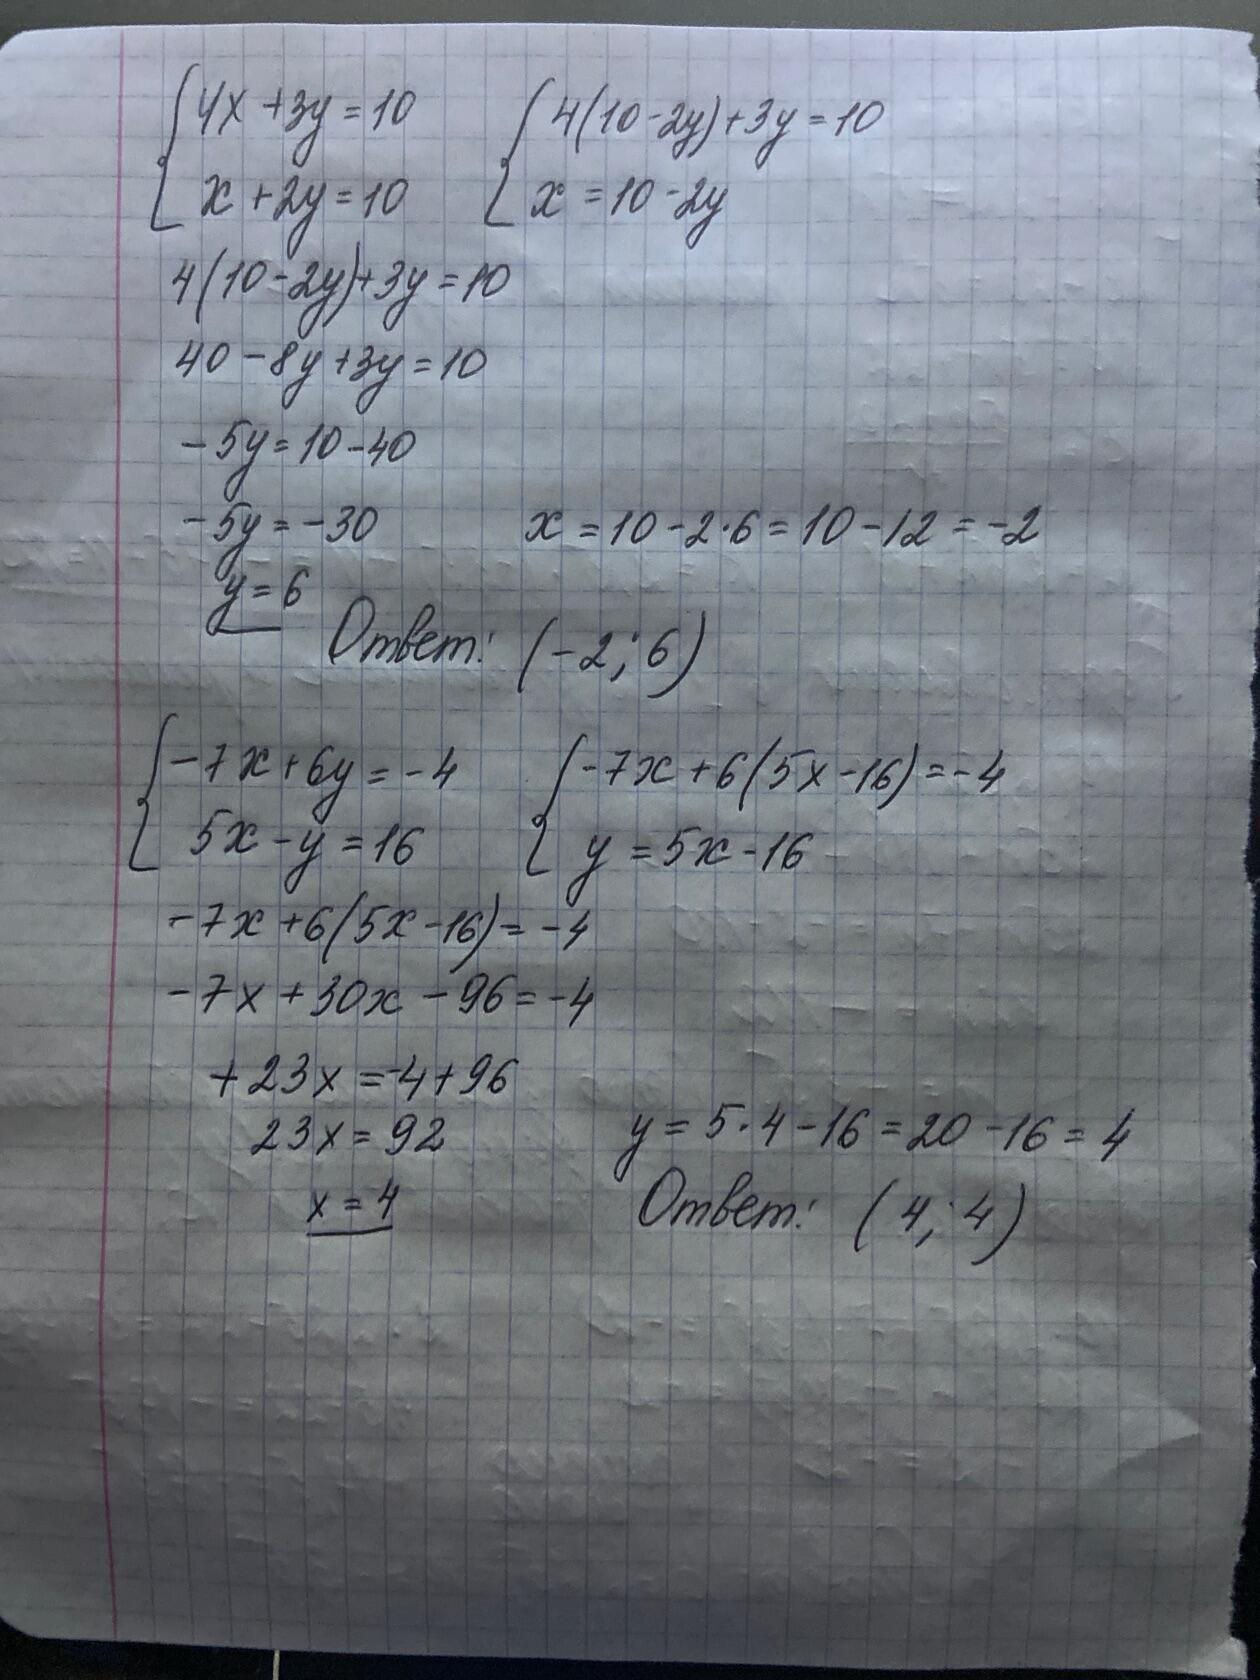 4x+3y=10 4(10-2y)+3y=10
x+2y=10 x=10-2y
4(10-2y)+3y=10
40-8y+3y=10
-5y=10-40
-5y=-30 x=10-2·6=10-12=-2
y=6
Ответ: (-2; 6)
-7x+6y=-4 -7x+6(5x-16)=-4
5x-y=16 y=5x-16
-7x+6(5x-16)=-4
-7x+30x-96=-4
+23x=-4+96
23x=92 y=5·4-16=20-16=4
x=4 Ответ: (4; 4)